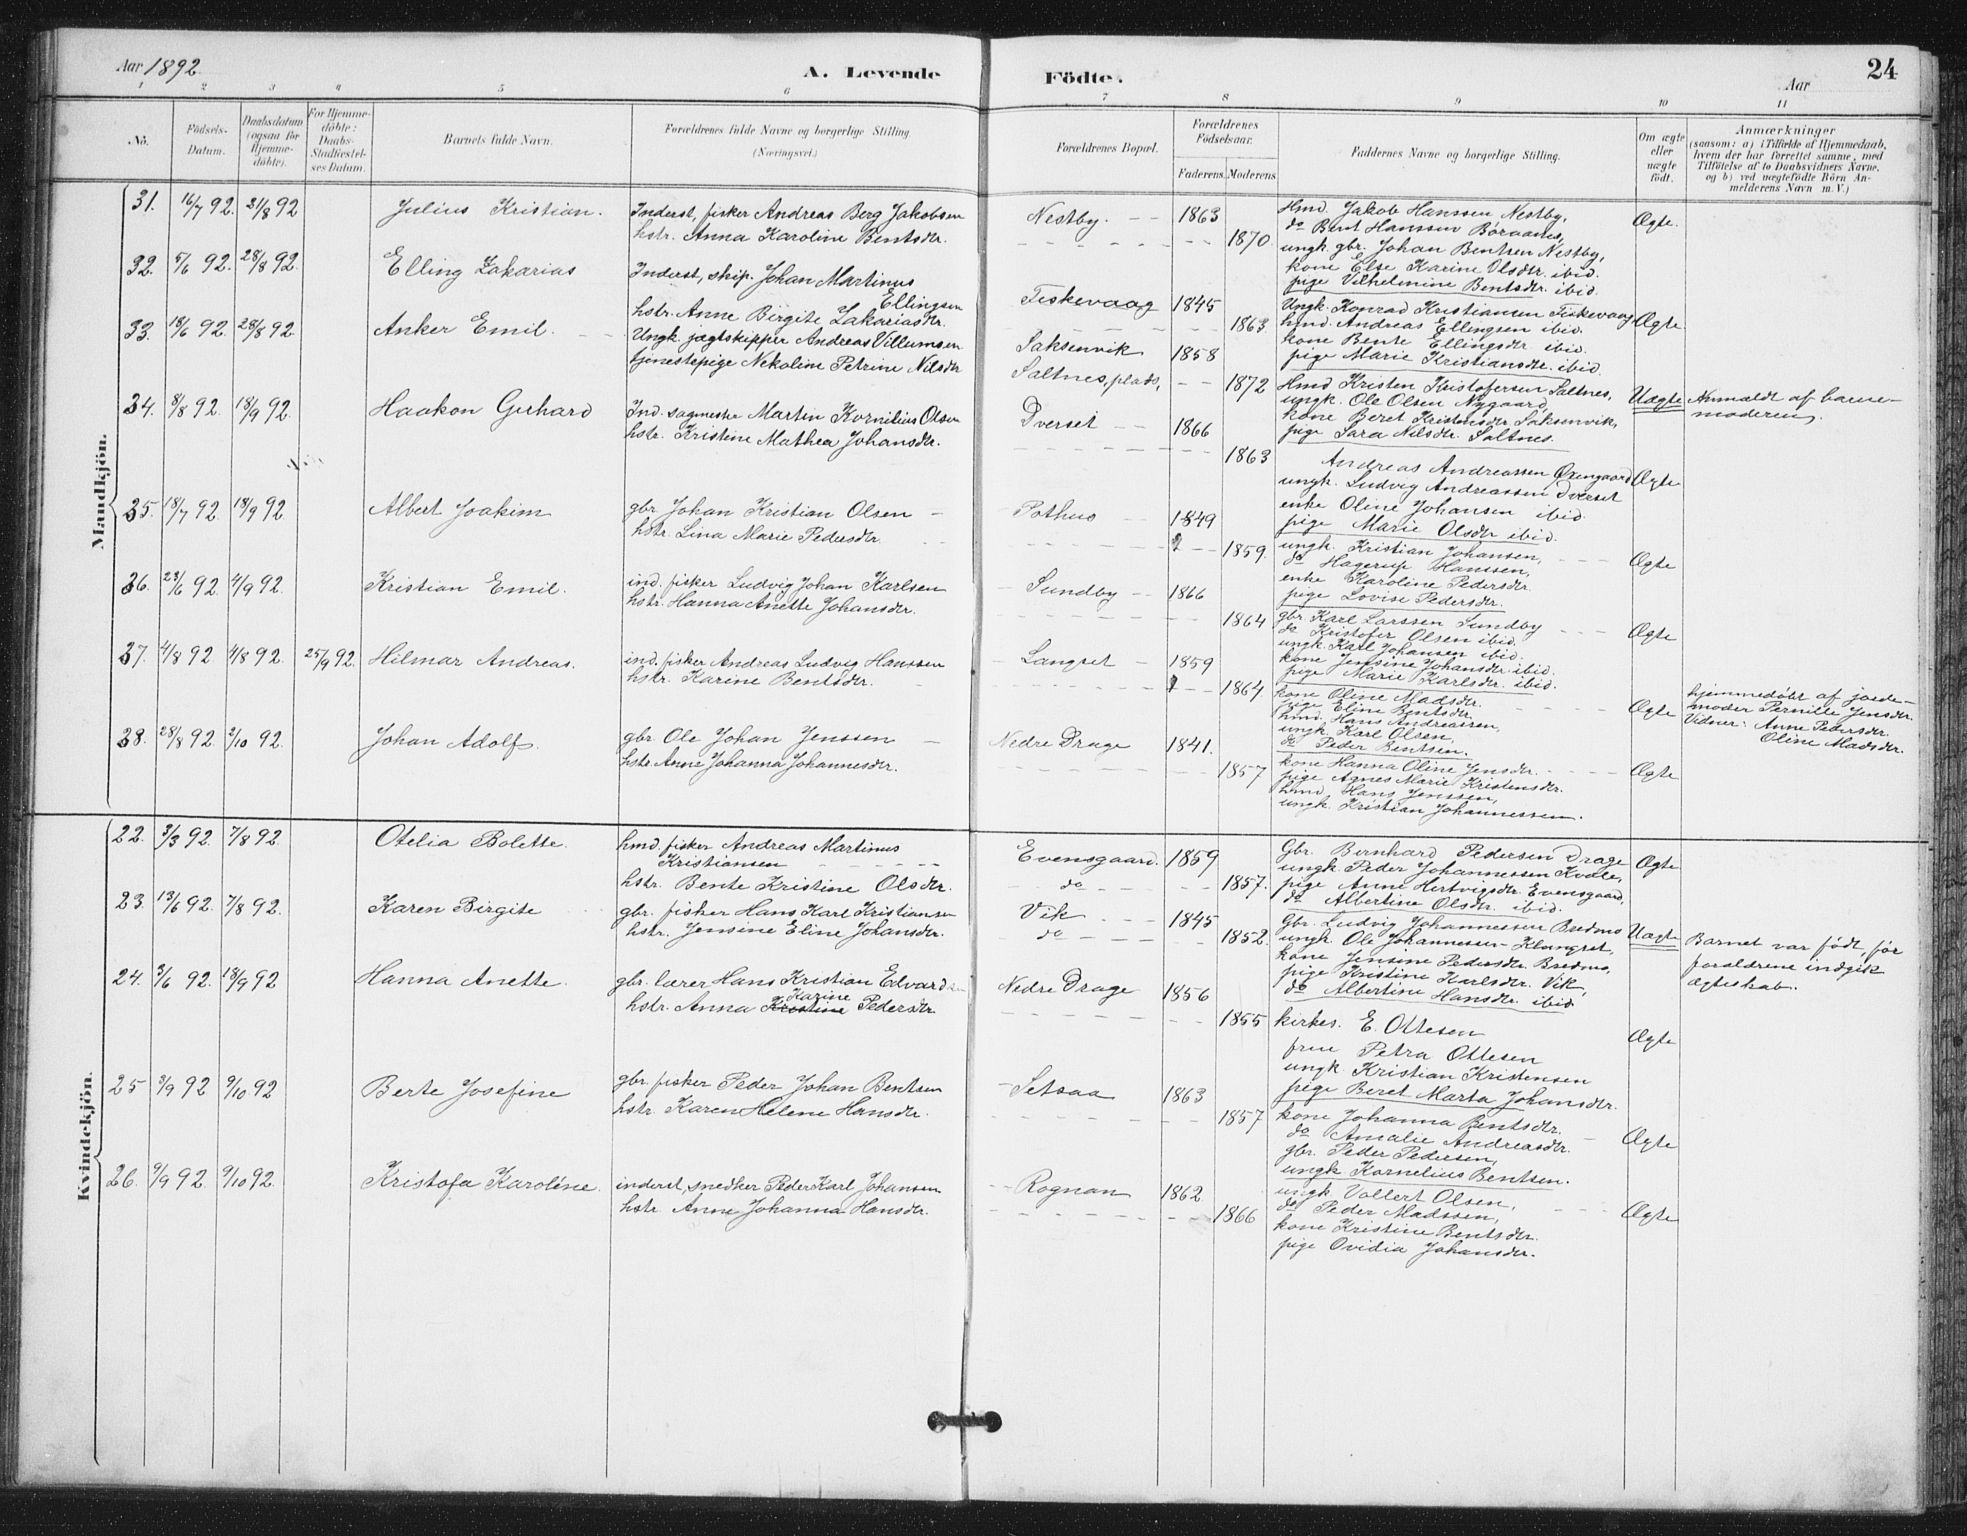 Aar 1892.
A. Levende Födte.
Aar
24
1 2 3 4 5 6 7 8 9 10 11
No.
Födsels-Datum.
Daabsdatum (ogsaa for Hjemmedöbte).
For Hjemmedöbte: Daabs-Stadfæstelses Datum.
Barnets fulde Navn.
Forældrenes fulde Navne og borgerlige Stilling (Næringsvei.)
Forældrenes Bopæl.
Forældrenes Födselsaar.
Faderens. Moderens
Faddernes Navne og borgerlige Stilling.
Om ægte eller uægte födt.
Anmærkninger
(saasom: a) i Tilfælde af Hjemmedaab,
hvem der har forrettet samme, med
Tilföielse af to Daabsvidners Navne.
og b) ved uægtefödte Börn An-
melderens Navn m. V.)
Mandkjön.
31. 16/7 92. 21/8 92 Julius Kristian. Inderst, fisker Andreas Berg Jakobsen
hstr. Anna Karoline Bentsdtr.
Nestby. 1863
1870
Hmd. Jakob Hanssen Nestby,
do Bent Hanssen Boraanes,
ungk. gbr. Johan Bentsen Nestby,
kone Else Karine Olsdtr. ibid.
pige Vilhelmine Bentsdtr. ibid.
Ægte.
32. 5/6 92. 28/8 92. Elling Zakarias Inderst, skip. Johan Martinus
Ellingsen
hstr. Anne Birgite Zakariasdtr.
Fiskevaag 1845
1863
Ungk. Konrad Kristiansen Fiskevaag
hmd. Andreas Ellingsen ibid.
kone Bente Ellingsdtr. ibid.
pige Marie Kristiansdtr. ibid.
Ægte
33. 18/6 92. 28/8 92. Anker Emil. Ungk. jægtskipper Andreas Villumsen
tjenestepige Nekoline Petrine Nilsdtr
Saksenvik 1858
Saltnes, plads, 1872
Hmd Kristen Kristofersen Saltnes,
ungk. Ole Olsen Nygaard
kone Beret Kristensdtr Saksenvik,
pige Sara Nilsdtr. Saltnes.
Uægte
Anmældt af barne-
moderen.
34. 8/8 92. 18/9 92. Haakon Gerhard Ind. sagmester Martin Kornilius Olsen
hstr. Kristine Mathea Johansdtr.
Dverset 1866
1863
Andreas Andreassen Øxengaard
ungk. Ludvig Andreassen Dverset
enke Oline Johansen ibid
pige Marie Olsdtr ibid.
Ægte
35. 18/7 92. 18/9 92. Albert Joakim gbr Johan Kristian Olsen
hstr. Lina Marie Pedersdtr.
Pothus 1849
1859.
ungk. Kristian Johansen,
do Hagerup Hanssen,
enke Karoline Pedersdtr.
pige Lovise Pedersdtr.
Ægte
36. 23/6 92. 4/9 92. Kristian Emil. ind. fisker Ludvig Johan Karlsen
hstr. Hanna Anette Johansdtr.
Sundby 1866
1864
gbr. Karl Larssen Sundby
do Kristofer Olsen ibid.
ungk. Karl Johansen ibid.
kone Jensine Johansdtr. ibid.
pige Marie Karlsdtr. ibid.
Ægte
37. 4/8 92 4/8 92. 25/9 92. Hilmar Andreas. ind. fisker Andreas Ludvig Hanssen
hstr. Karine Bentsdtr.
Langset 1859
1864
kone Oline Madsdtr.
pige Eline Bentsdtr.
hmd. Hans Andreassen,
ungk. Karl Olsen,
do Peder Bentsen.
Ægte
hjemmedøbt af jorde-
moder Pernille Jensdtr.
Vidner: Anne Pedersdtr.
Oline Madsdtr.
38. 28/8 92 2/10 92. Johan Adolf. gbr Ole Johan Jenssen
hstr. Anne Johanna Johannesdtr.
Nedre Drage 1841.
1857
kone Hanna Oline Jensdtr.
pige Agnes Marie Kristensdtr.
hmd. Hans Jenssen,
ungk. Kristian Johannessen.
Ægte
Kvindekjön.
22. 3/3 92. 7/8 92. Otelia Bolette. hmd. fisker Andreas Martinus
Kristiansen
hstr. Bente Kristine Olsdtr.
Evensgaard. 1859
do 1857.
Gbr. Bernhard Pedersen Drage
ungk. Peder Johannessen Kvæle,
pige Anne Hertvigsdtr. Evensgaard,
do Albertine Olsdtr. ibid.
Ægte
23. 13/6 92. 7/8 92. Karen Birgite gbr. fisker Hans Karl Kristiansen
hstr. Jensine Eline Johansdtr.
Vik 1845
do 1852.
Gbr. Ludvig Johannessen Bredmo
ungk. Ole Johannessen Klungset,
kone Jensine Pedersdtr. Bredmo,
pige Kristine Karlsdtr. Vik,
do Albertine Hansdtr. ibid
Uægte
Barnet var født, før
forældrene indgik
ægteskab.
24. 3/6 92. 18/9 92 Hanna Anette. gbr. lærer Hans Kristian Edvardsen
hstr. Anna Kristine Karine Pedersdtr.
Nedre Drage 1856
1855
kirkes. E. Ottesen
frue Petra Ottesen
ungk. Kristian Kristensen
pige Beret Marta Johansdtr.
Ægte
25 3/9 92 9/10 92 Berte Josefine gbr. fisker Peder Johan Bentsen
hstr. Karen Helene Hansdtr.
Setsaa 1863
1857
kone Johanna Bentsdtr.
do Amalie Andreasdtr.
gbr. Peder Pedersen,
ungk. Kornelius Bentsen.
Ægte
26. 9/9 92 9/10 92. Kristofa Karoline. inderst, snedker Peder Karl Johansen
hstr. Anne Johanna Hansdtr.
Rognan 1862
1866
ungk. Vollert Olsen,
do Peder Madssen,
kone Kristine Bentsdtr.
pige Ovidia Johansdtr.
Ægte